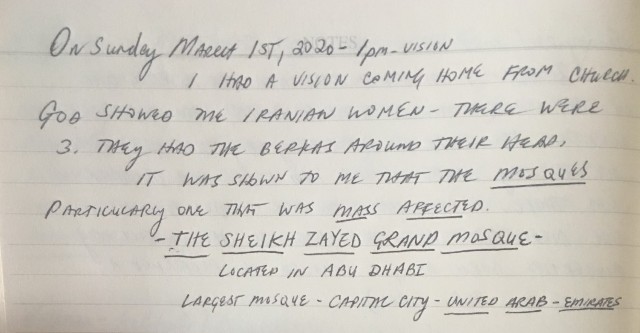 NOTES
On Sunday March 1st, 2020 - 1pm - vision
I HAD A VISION COMING HOME FROM CHURCH.
GOD SHOWED ME IRANIAN WOMEN - THERE WERE
3. THEY HAD THE BERKAS AROUND THEIR HEAD.
IT WAS SHOWN TO ME THAT THE MOSQUES
PARTICULARLY ONE THAT WAS MASS AFFECTED.
- THE SHEIKH ZAYED GRAND MOSQUE -
LOCATED IN ABU DHABI
LARGEST MOSQUE - CAPITAL CITY - UNITED ARAB - EMIRATES